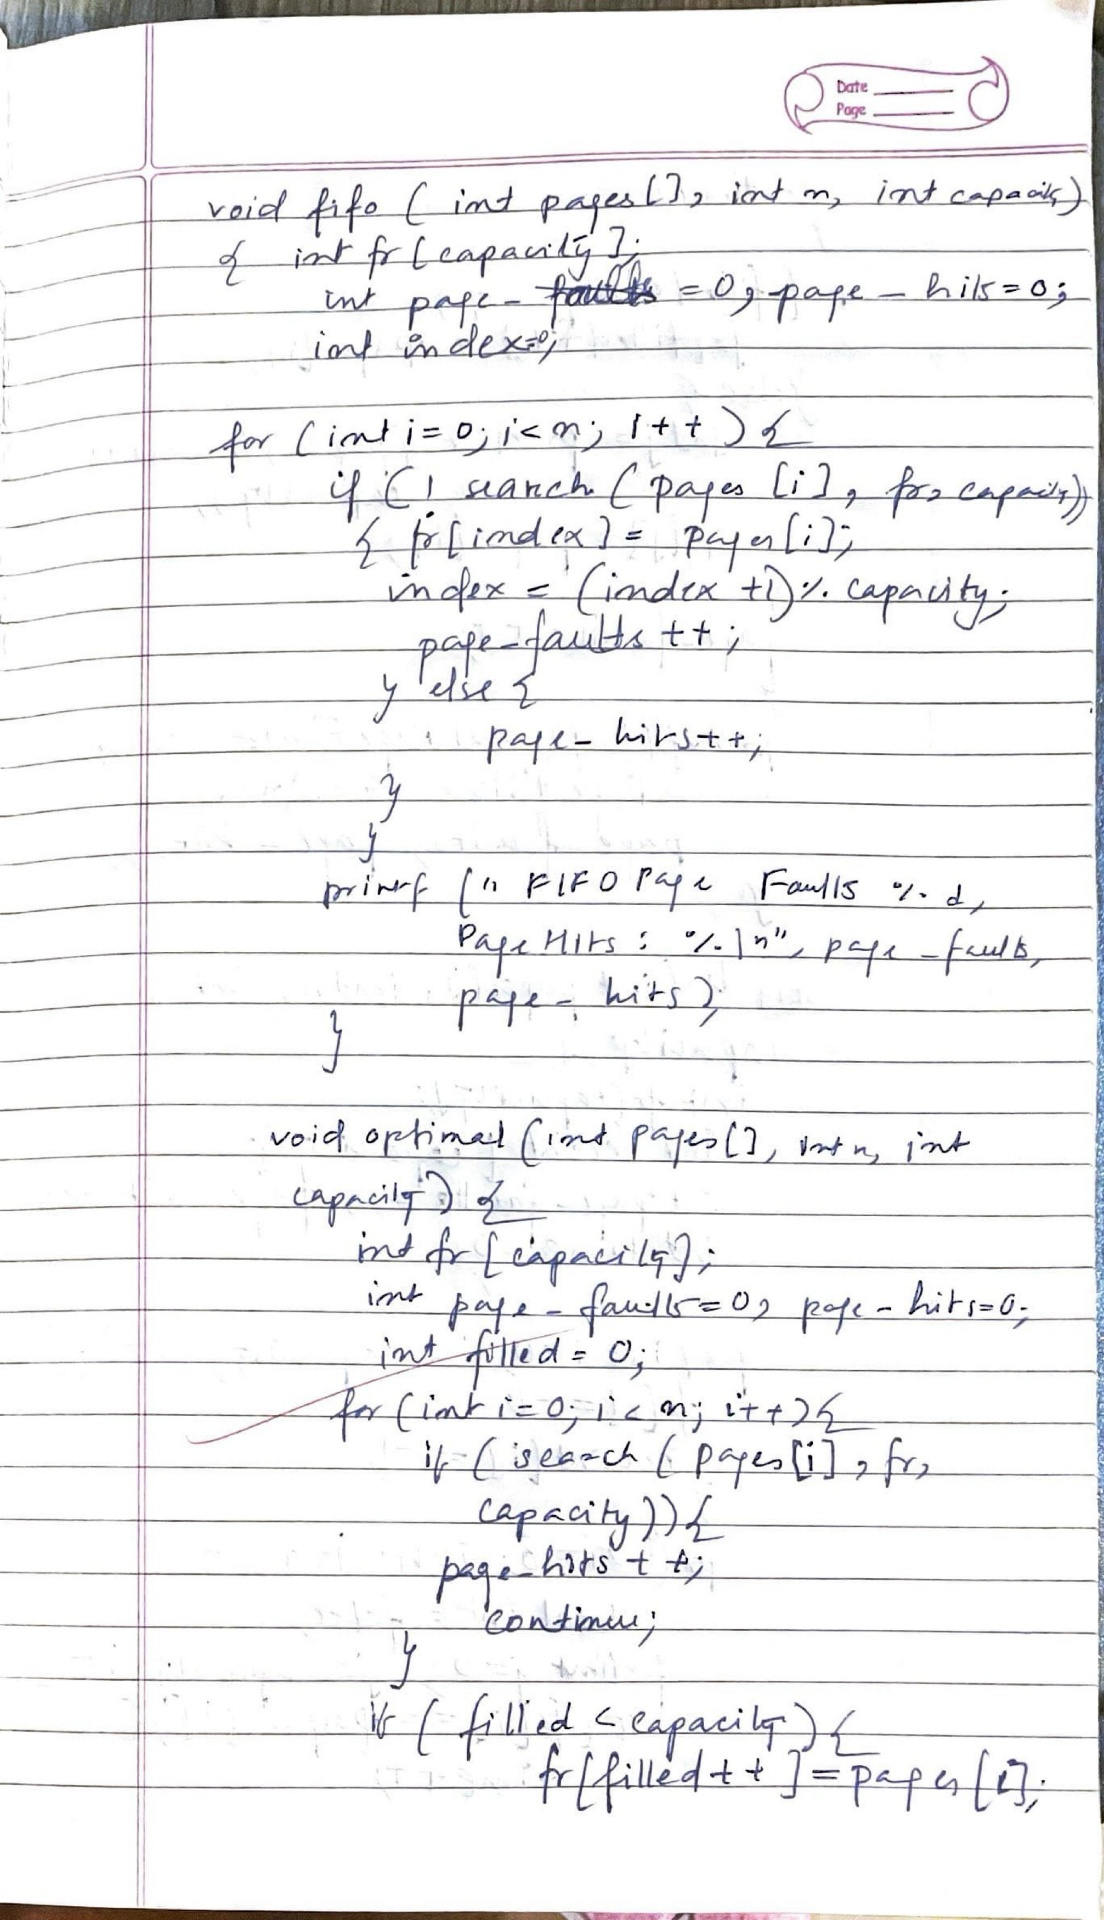 Date
Page
void fifo ( int pages[], int n, int capacity)
{ int fr [capacity];
int page_faults = 0, page_hits = 0;
int index=0;
for (int i=0; i<n; i++) {
if (! search ( pages [i], fr, capacity))
{ fr[index] = pages[i];
index = (index +1) % capacity;
page_faults ++;
} else {
page_hits++;
}
}
printf (" FIFO Page Faults %d,
Page Hits : %\n", page_faults,
page_hits);
}
void optimal (int pages[], int n, int
capacity) {
int fr [capacity];
int page_faults=0, page_hits=0;
int filled = 0;
for (int i=0; i<n; i++) {
if (search ( pages[i], fr,
capacity)) {
page_hits ++;
continue;
}
if ( filled < capacity) {
fr[filled++] = pages[i];